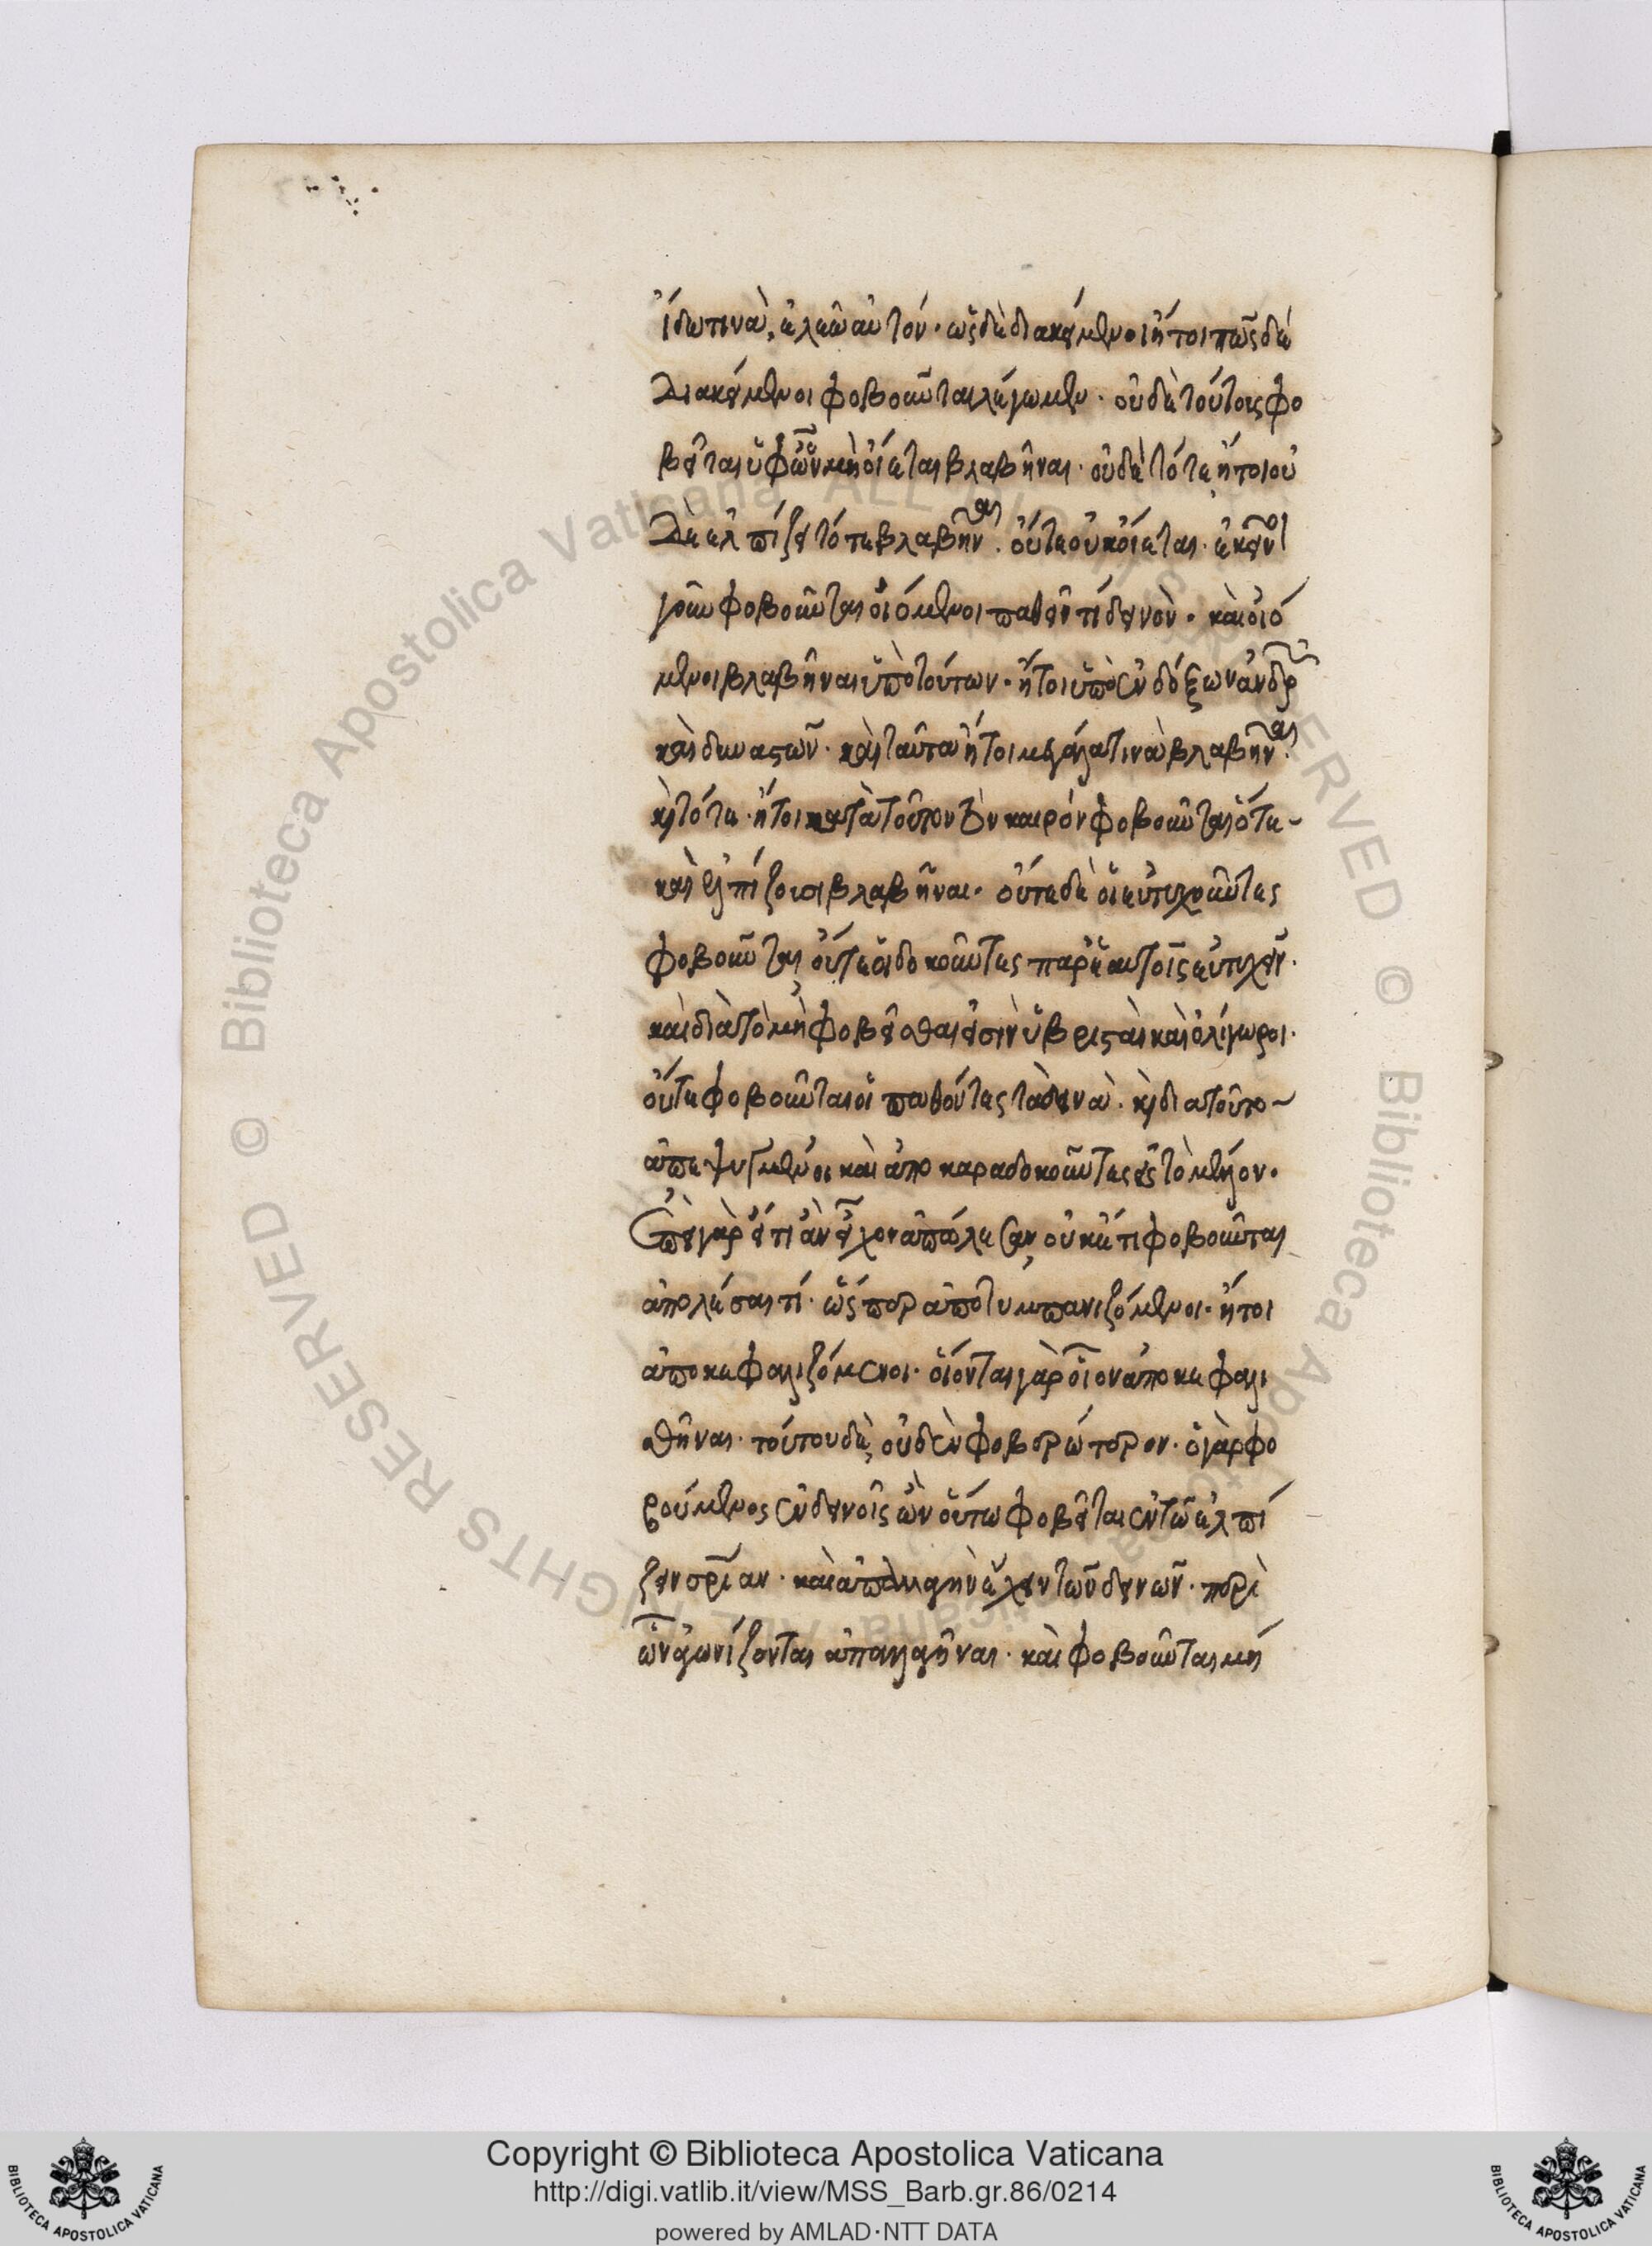 ἴδω τινὰ, ἐλεῶ αὐτόν. ὡς δὲ διακείμενοι ἤτοι πῶς δὲ
διακείμενοι φοβοῦνται λέγωμεν. οὐδὲ τούτοις φο
βεῖται ὑφ' ὧν μὴ οἴεται βλαβῆναι. οὐδὲ τότε ἤτοι οὐ
δὲ ἐλπίζει τότε βλαβῆναι. ὅτε οὐκ οἴεται. ἐκεῖνοι
γοῦν φοβοῦνται οἱ οἰόμενοι παθεῖν τί δεινὸν. καὶ οἱ οἰό
μενοι βλαβῆναι ὑπὸ τούτων. ἤτοι ὑπὸ ἐνδόξων ἀνδρ
καὶ δυναστῶν. καὶ ταῦτα ἤτοι μεγάλα τινὰ βλαβῆναι.
καὶ τότε. ἤτοι κατὰ τοῦτον τὸν καιρόν φοβοῦνται ὅτε
καὶ ἐλπίζουσι βλαβῆναι. οὔτε δὲ οἱ εὐτυχοῦντες
φοβοῦνται οὔτε οἱ δοκοῦντες παρ' ἑαυτοῖς εὐτυχεῖν.
καὶ διὰ τὸ μὴ φοβεῖσθαι εἰσὶν ὑβρισταὶ καὶ ὀλίγωροι.
οὔτε φοβοῦνται οἱ παθόντες τὰ δεινὰ. καὶ διὰ τοῦτο
ἀπεψυγμένοι καὶ ἀποκαραδοκοῦντες εἰς τὸ μέλλον.
ἐπεὶ γὰρ εἴ τι ἂν εἶχον ἀπώλεσαν, οὐκέτι φοβοῦνται
ἀπολέσαι τί. ὥσπερ ἀποτυμπανιζόμενοι. ἤτοι
ἀποκεφαλιζόμενοι. οἴονται γὰρ οἷον ἀποκεφαλι
σθῆναι. τούτου δὲ, οὐδὲν φοβερώτερον. ὁ γὰρ φο
βούμενος ἐν δεινοῖς ὢν οὕτω φοβεῖται ἐν τῶ ἐλπί
ζειν σρίαν. καὶ ἀπαλλαγὴν ἔχειν τῶν δεινῶν. περὶ
ὧν ἀγωνίζονται ἀπαλλαγῆναι. καὶ φοβοῦνται μή
Copyright © Biblioteca Apostolica Vaticana
http://digi.vatlib.it/view/MSS_Barb.gr.86/0214
powered by AMLAD·NTT DATA